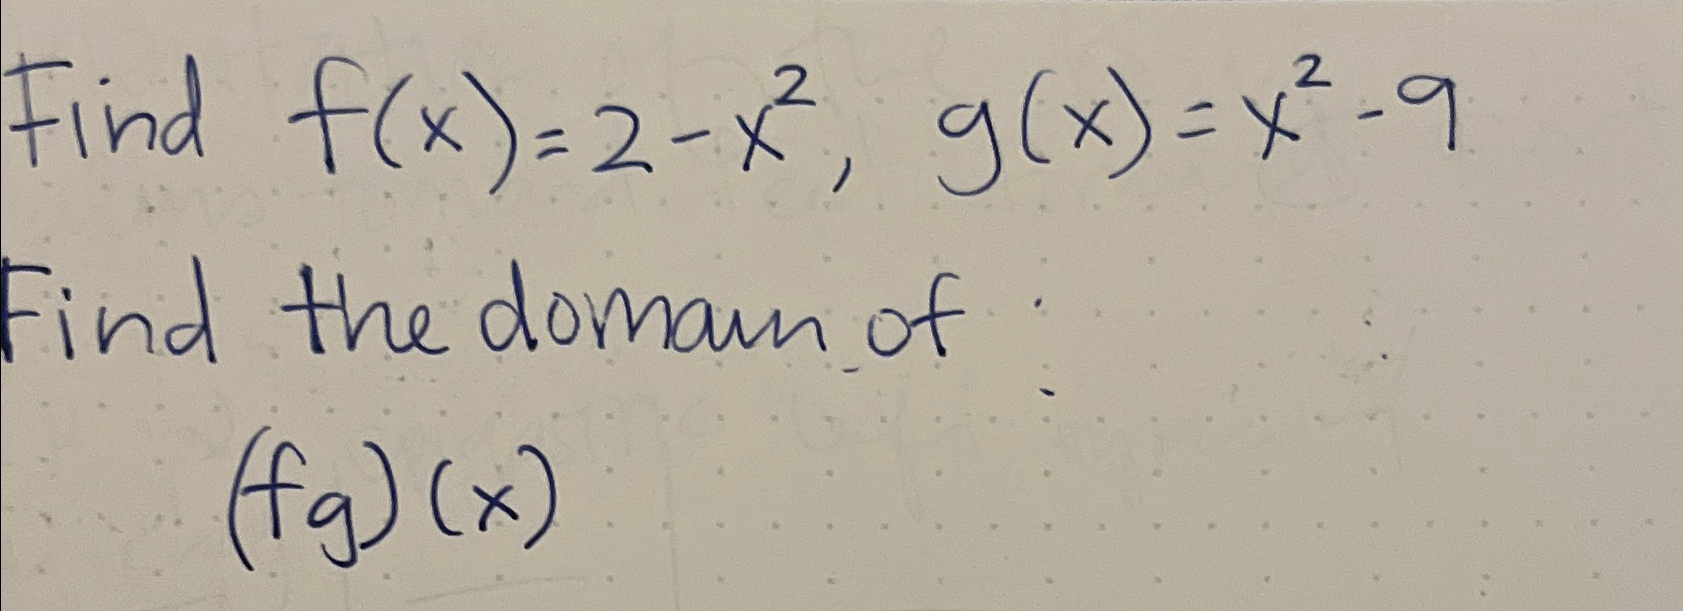 Find f(x)=2-x², g(x)=x²-9
Find the domain of :
(fg)(x)